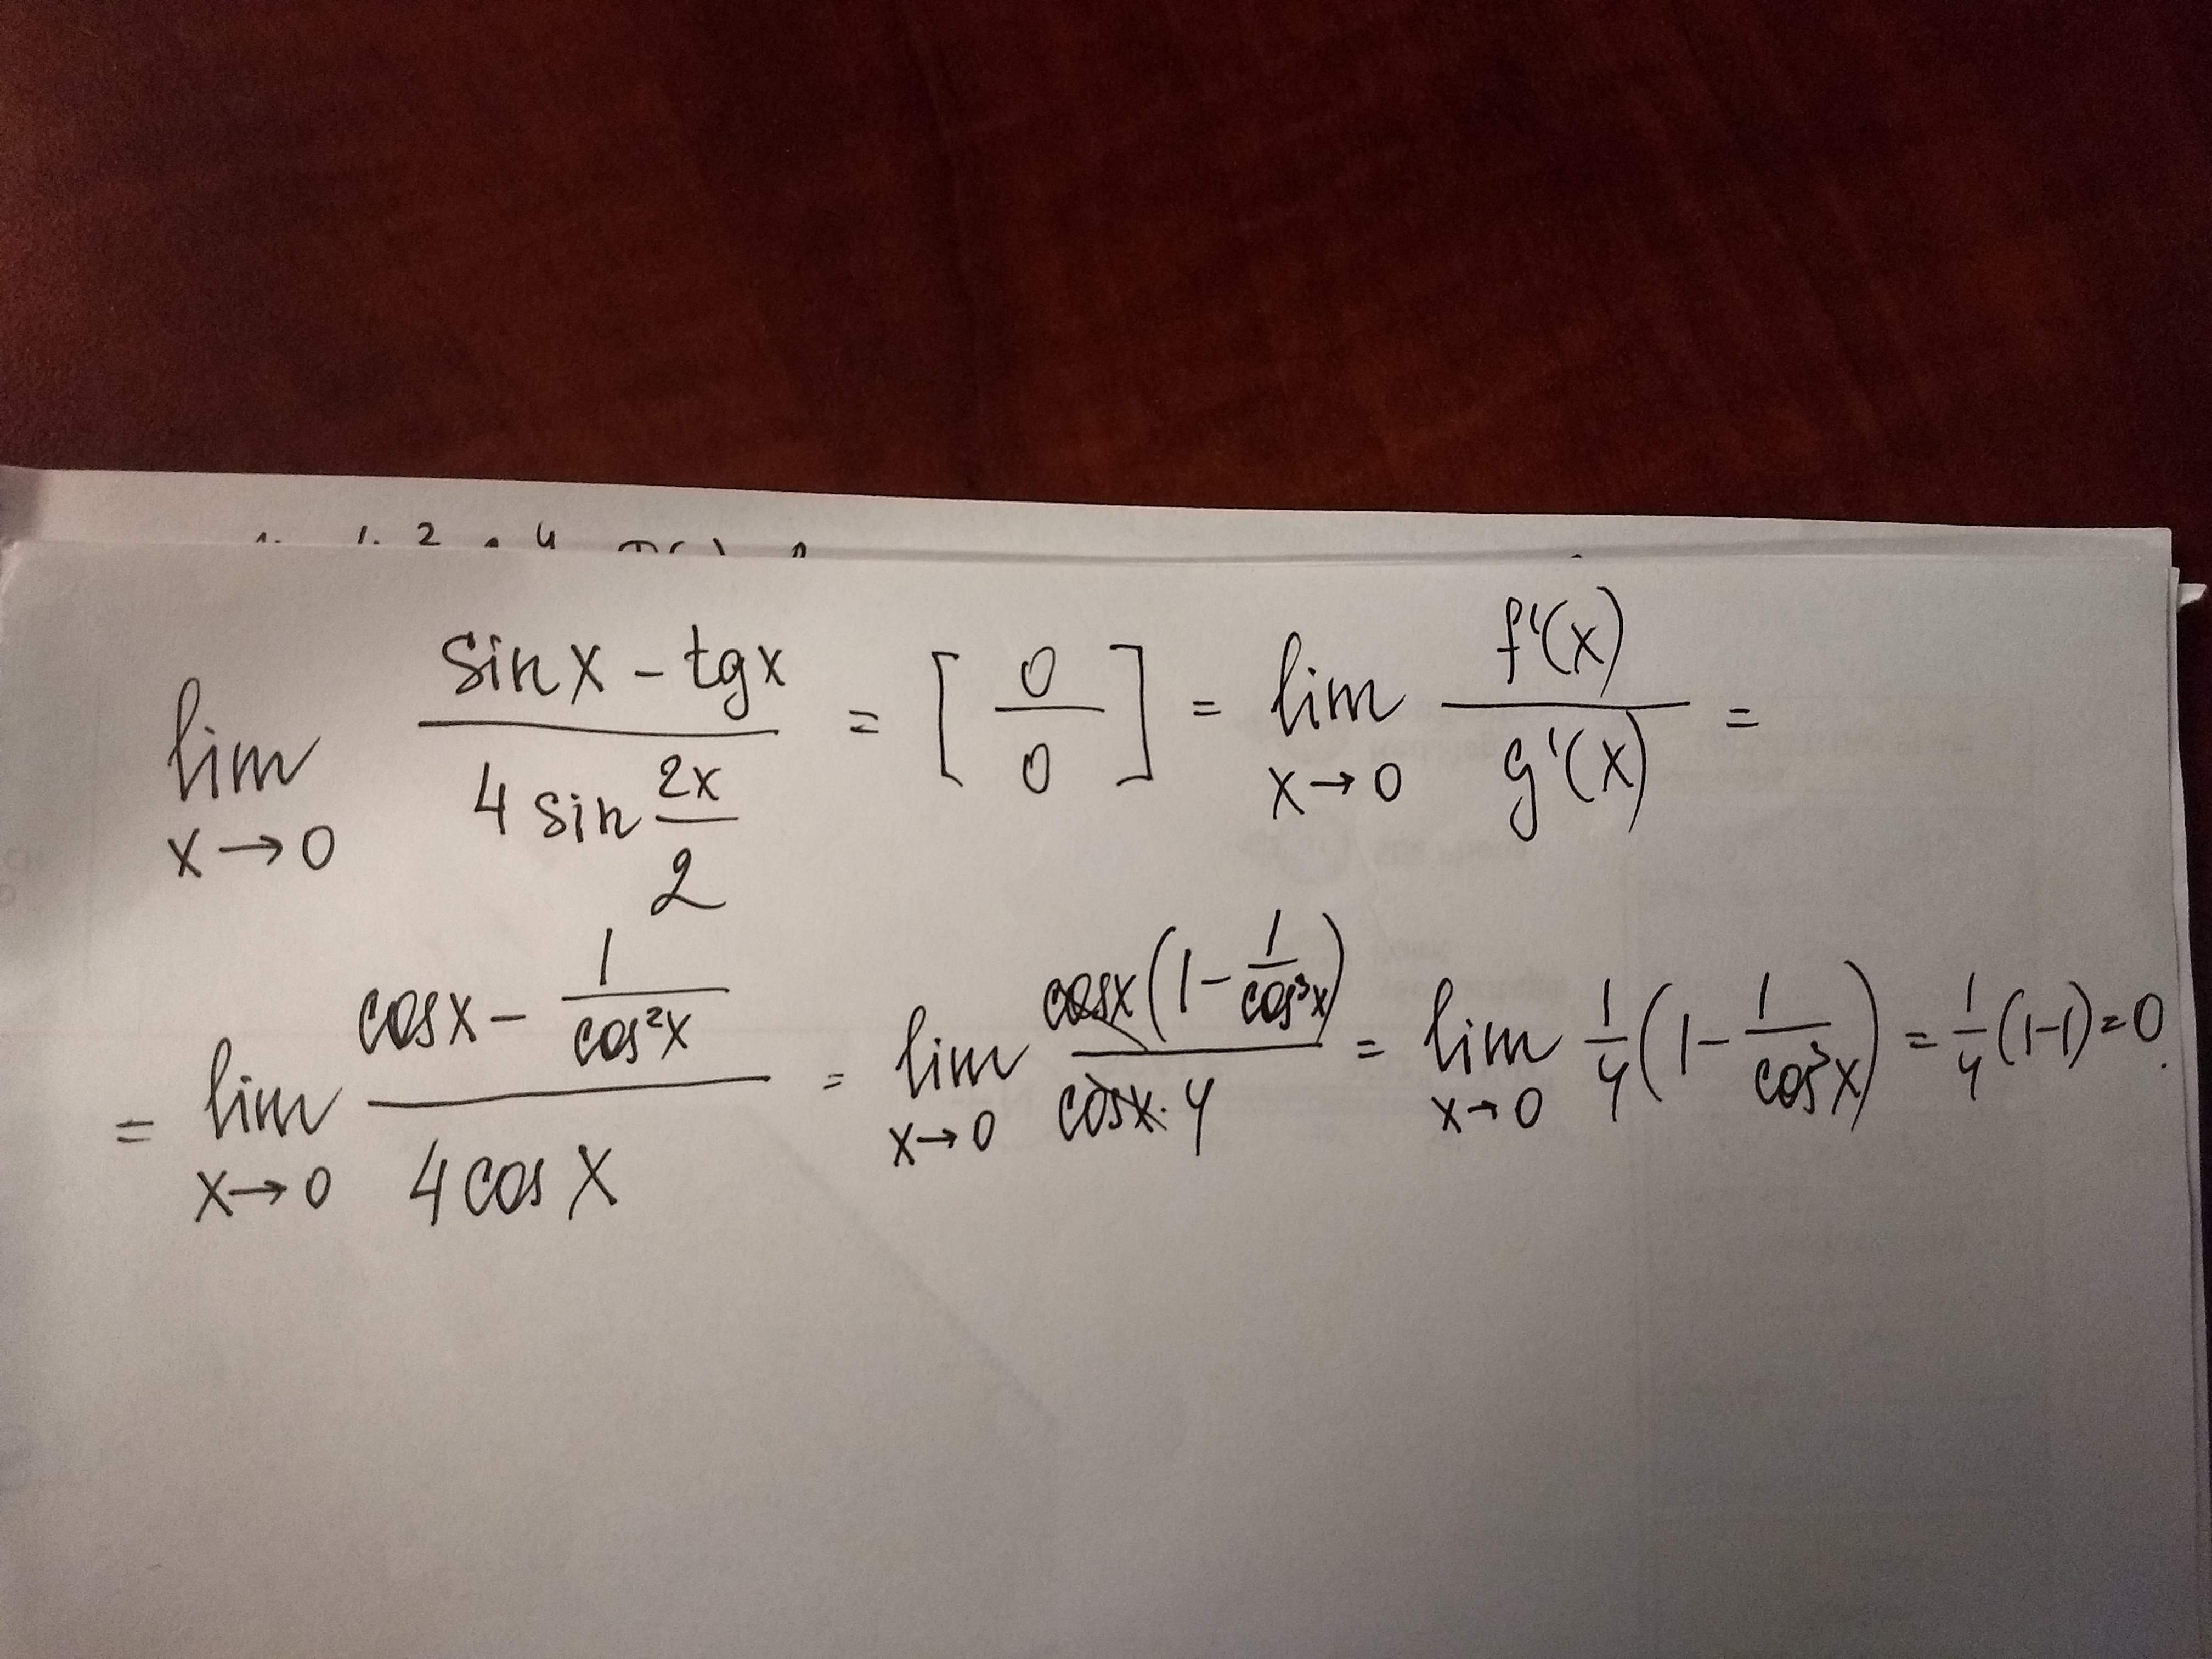 lim x→0 (sin x − tg x)/(4 sin 2x/2) = [0/0] = lim x→0 f'(x)/g'(x) =
= lim x→0 (cos x − 1/cos²x)/(4 cos x) = lim x→0 cos x (1 − 1/cos³x)/(cos x · 4) = lim x→0 1/4 (1 − 1/cos³x) = 1/4 (1−1) = 0.